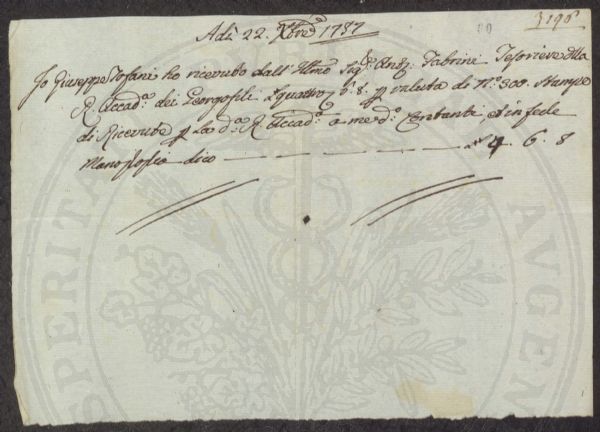 3196
Adi 22. Xbre 1787
Io Giuseppe Tofani ho ricevuto dall' Illmo Sigr. Antº. Fabrini Tesoriere della
R. Accadª. dei Georgofili £ quattro 6. 8. p valuta di Nº. 300. Stampe
di Ricevute p la dª. R. Accadª. a me dº. Contanti et in fede
Mano ppia dico — — — — — £ 4. 6. 8
PROSPERITATI AUGEN